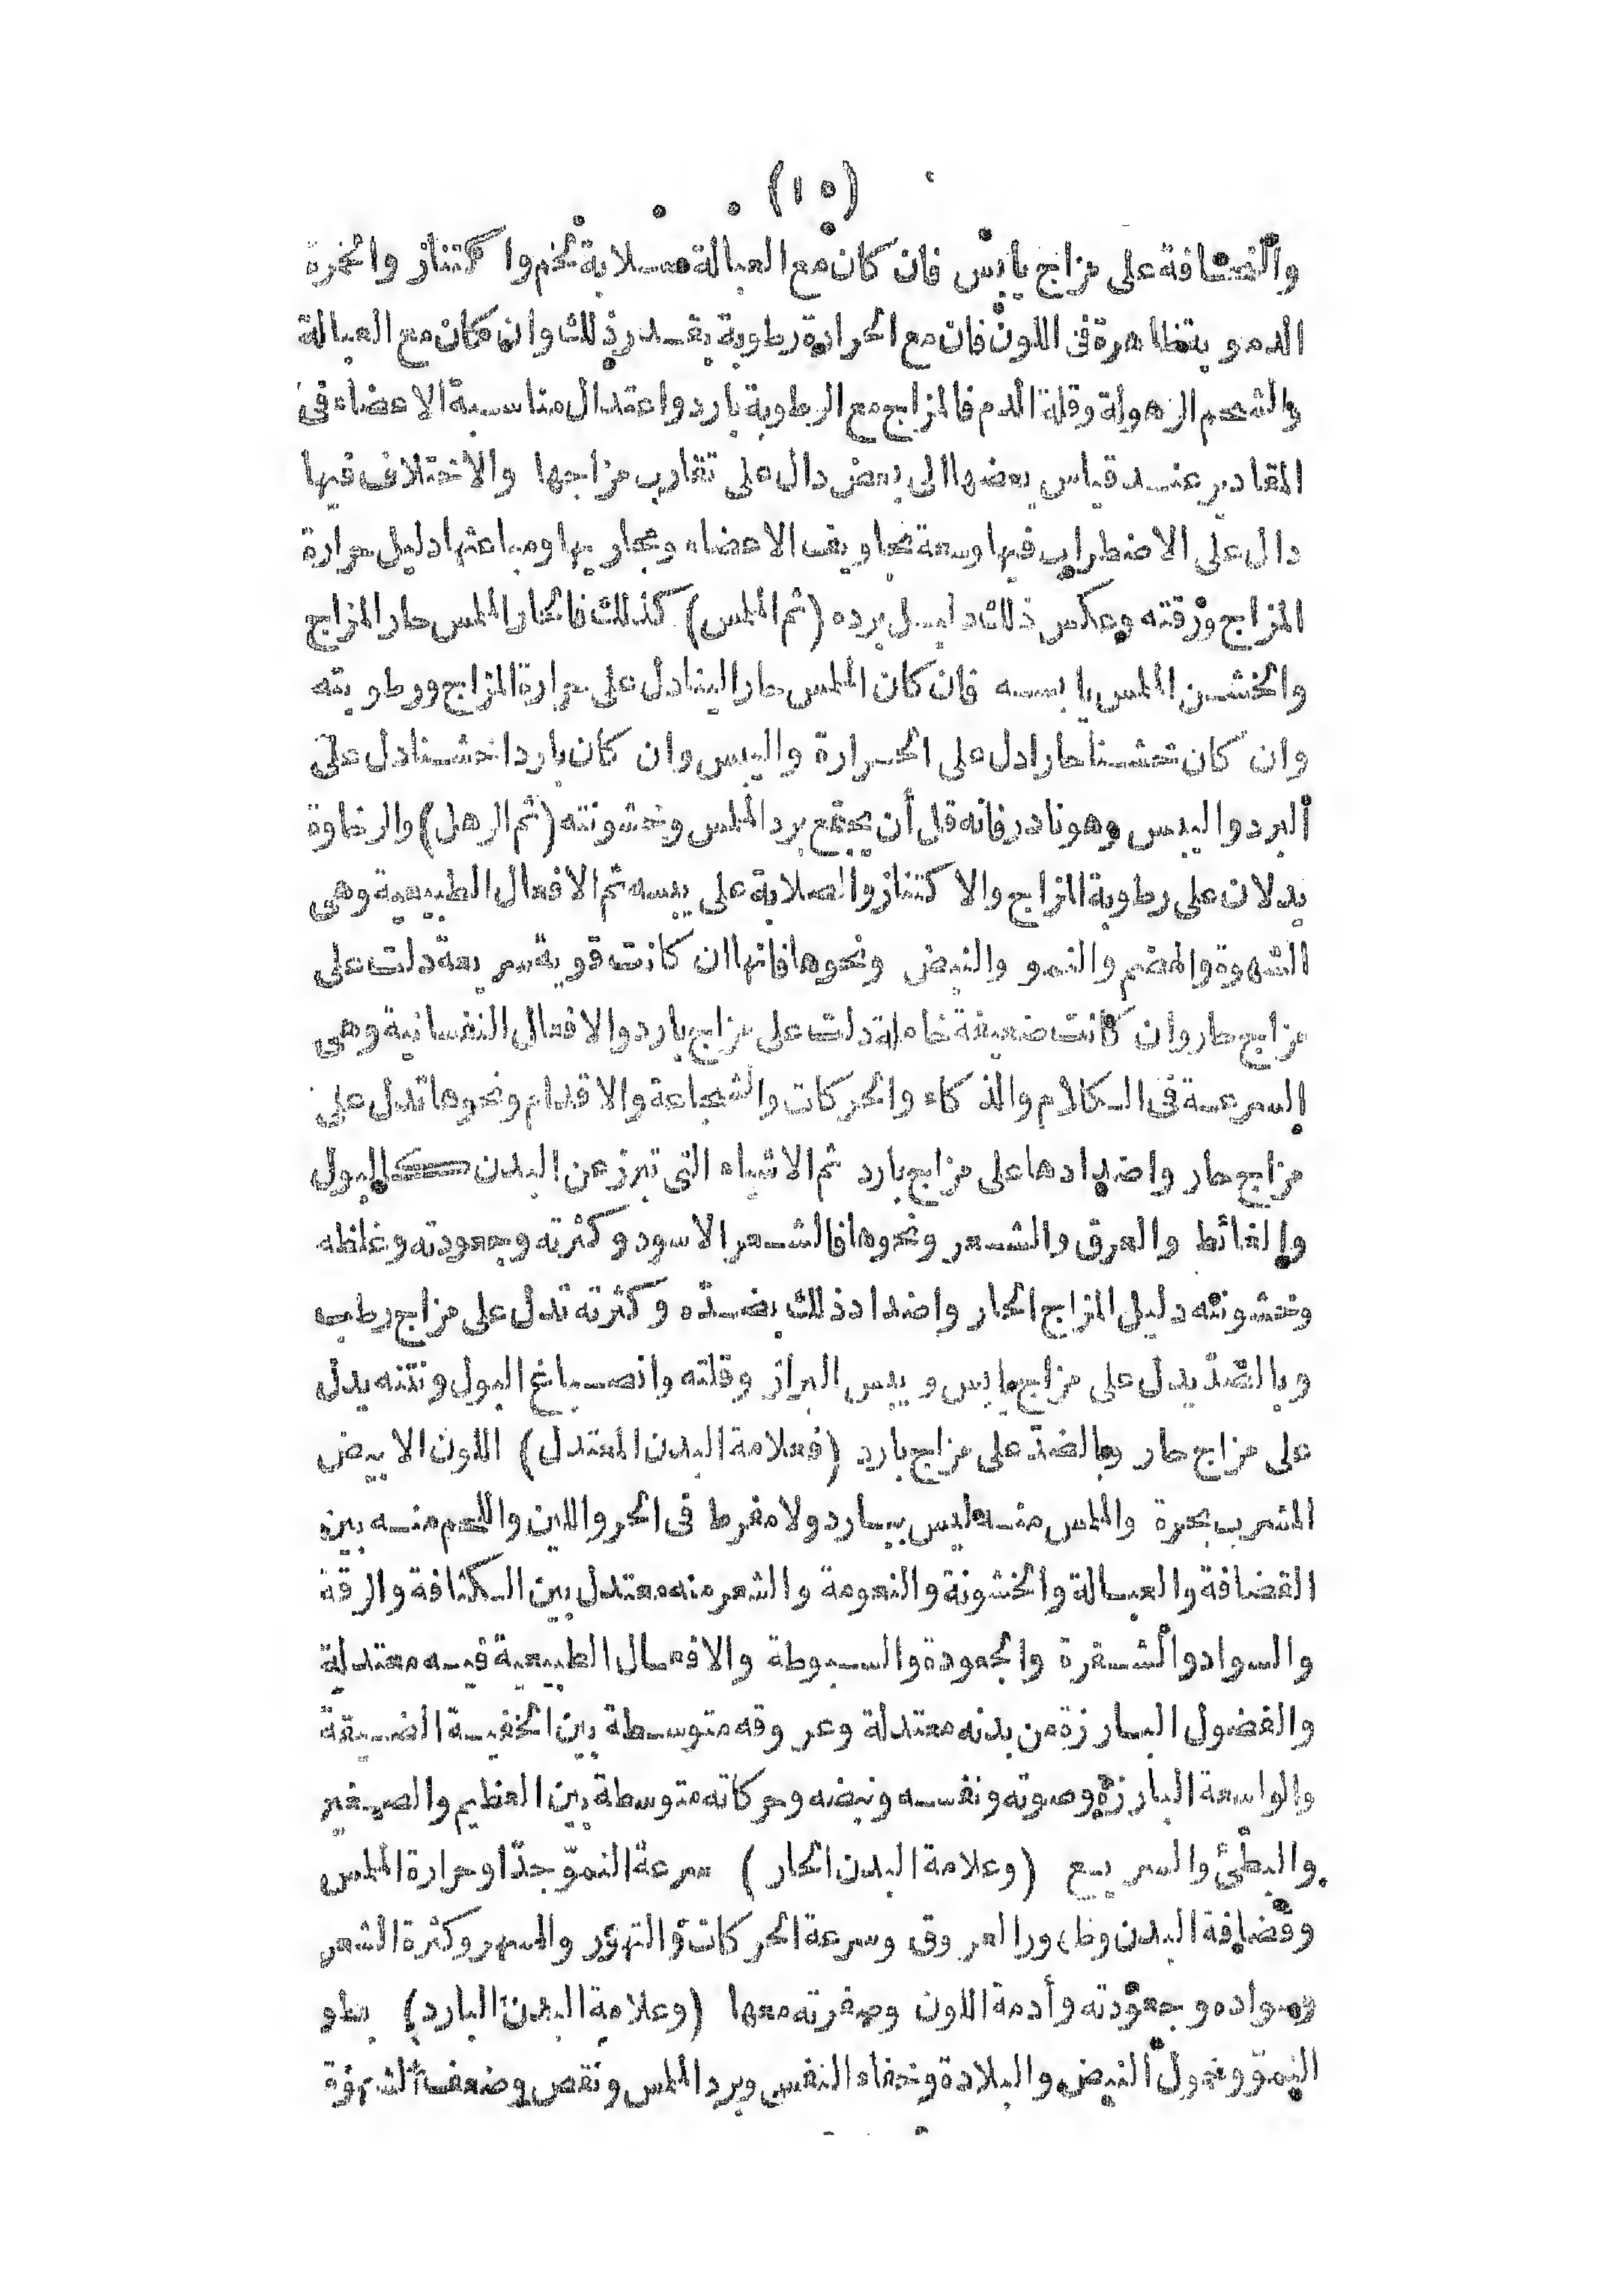 (١٥)
والقضافة على مزاج يابس فان كان مع العبالة صلابة لحم واكتناز والحمرة
الدموية ظاهرة فى اللون فان مع الحرارة رطوبة بقدر ذلك وان كان مع العبالة
والشحم الرهولة وقلة الدم فالمزاج مع الرطوبة بارد واعتدال مناسبة الاعضاء فى
المقادير عند قياس بعضها الى بعض دال على تقارب مزاجها والاختلاف فيها
دال على الاضطراب فيها وسعة تجاويف الاعضاء ومجاريها ومباعثها دليل حرارة
المزاج ورقته وعكس ذلك دليل برده (ثم الملمس) كذلك فالحار الملمس حار المزاج
والخشن الملمس يابسه فان كان الملمس حارا لينا دل على حرارة المزاج ورطوبته
وان كان خشنا حارا دل على الحرارة واليبس وان كان باردا خشنا دل على
البرد واليبس وهو نادر فانه قل أن يجتمع برد الملمس وخشونته (ثم الرهل) والرخاوة
يدلان على رطوبة المزاج والاكتناز والصلابة على يبسه ثم الافعال الطبيعية وهى
الشهوة والهضم والنمو والنبض ونحوها فانها ان كانت قوية سريعة دلت على
مزاج حار وان كانت ضعيفة خاملة دلت على مزاج بارد والافعال النفسانية وهى
السرعة فى الكلام والذكاء والحركات والشجاعة والاقدام ونحوها تدل على
مزاج حار واضدادها على مزاج بارد ثم الاشياء التى تبرز عن البدن كالبول
والغائط والعرق والشعر ونحوها فالشعر الاسود وكثرته وجعودته وغلظه
وخشونته دليل المزاج الحار واضداد ذلك بضدّه وكثرته تدل على مزاج رطب
وبالضدّ يدل على مزاج يابس ويبس البراز وقلته وانصباغ البول ونتنه يدل
على مزاج حار وبالضدّ على مزاج بارد (فعلامة البدن المعتدل) اللون الابيض
المشرب بحمرة والملمس منه ليس ببارد ولا مفرط فى الحر واللين واللحم منه بين
القضافة والعبالة والخشونة والنعومة والشعر منه معتدل بين الكثافة والرقة
والسواد والشقرة والجعودة والسبوطة والافعال الطبيعية فيه معتدلة
والفضول البارزة من بدنه معتدلة وعروقه متوسطة بين الخفية الضيقة
والواسعة البارزة وصوته ونفسه ونبضه وحركاته متوسطة بين العظيم والصغير
والبطئ والسريع (وعلامة البدن الحار) سرعة النموّ جدّا وحرارة الملمس
وقضافة البدن وظهور العروق وسرعة الحركات والتهور والسهر وكثرة الشعر
وسواده وجعودته وأدمة اللون وصفرته معها (وعلامة البدن البارد) بطو
النموّ وخمول النبض والبلادة وخفاء النفس وبرد الملمس ونقص وضعف الشهوة